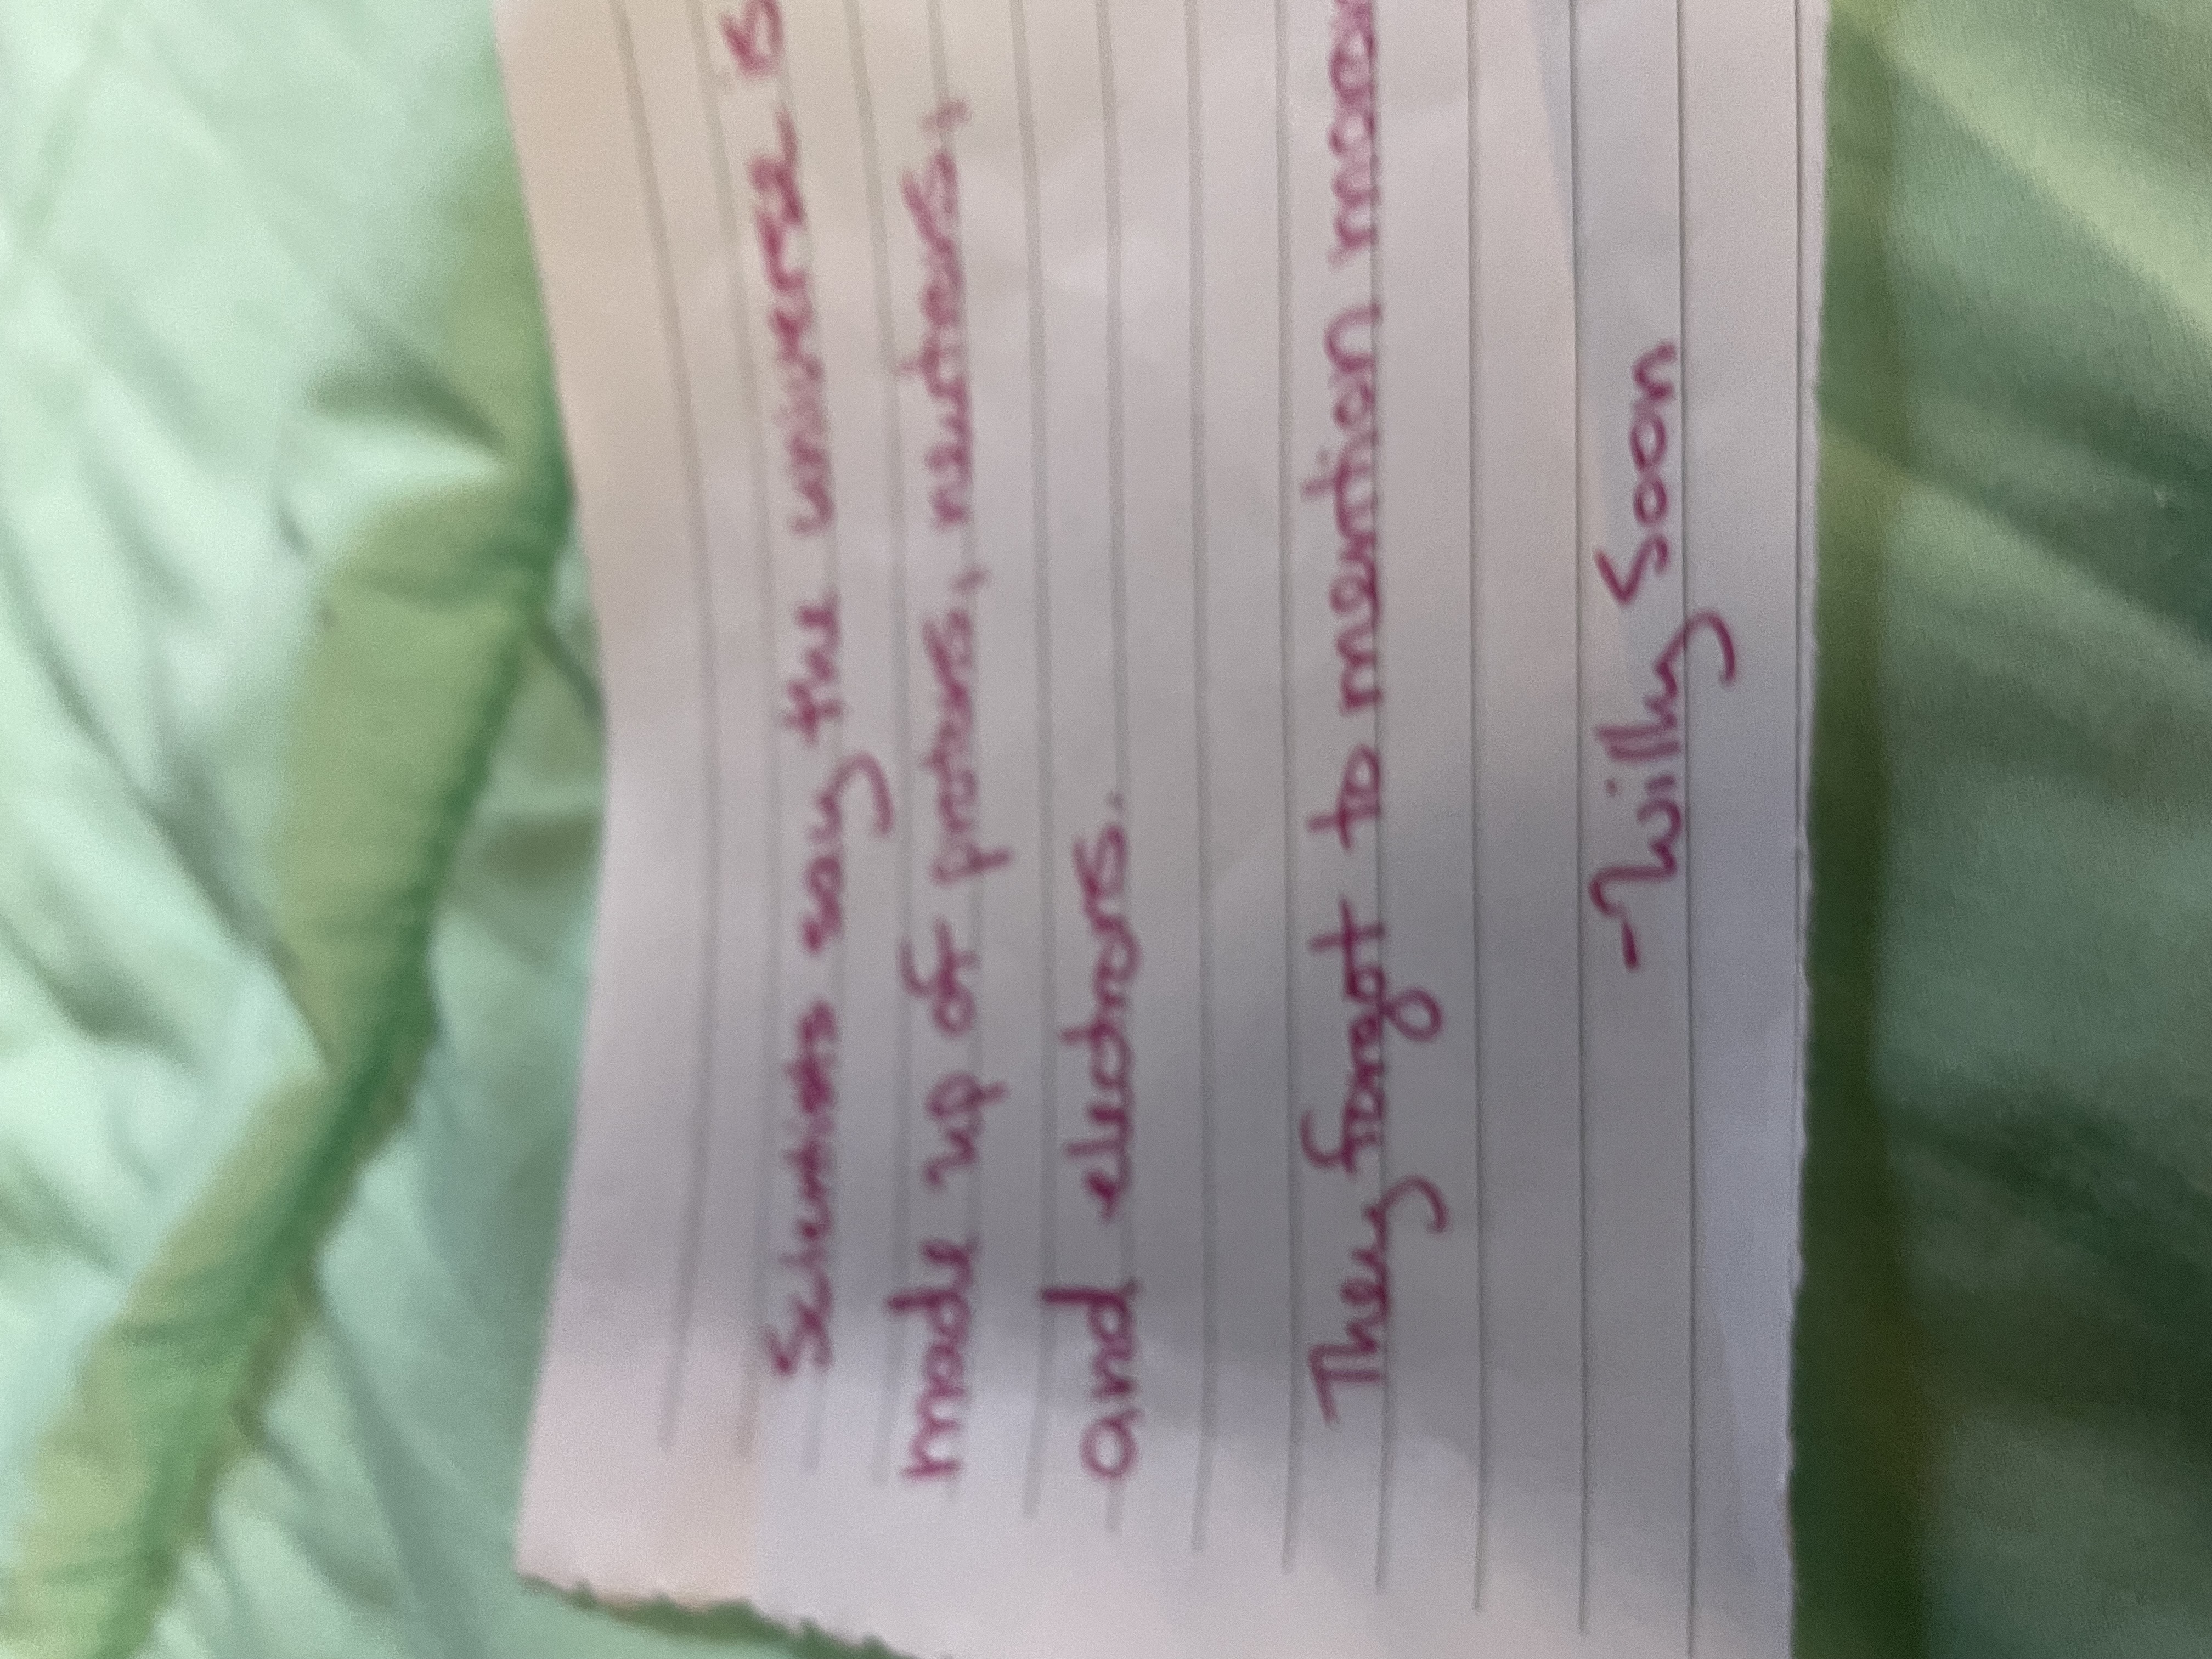 Scientists say the universe is
made up of protons, neutrons,
and electrons.
They forgot to mention
-Willy Soon